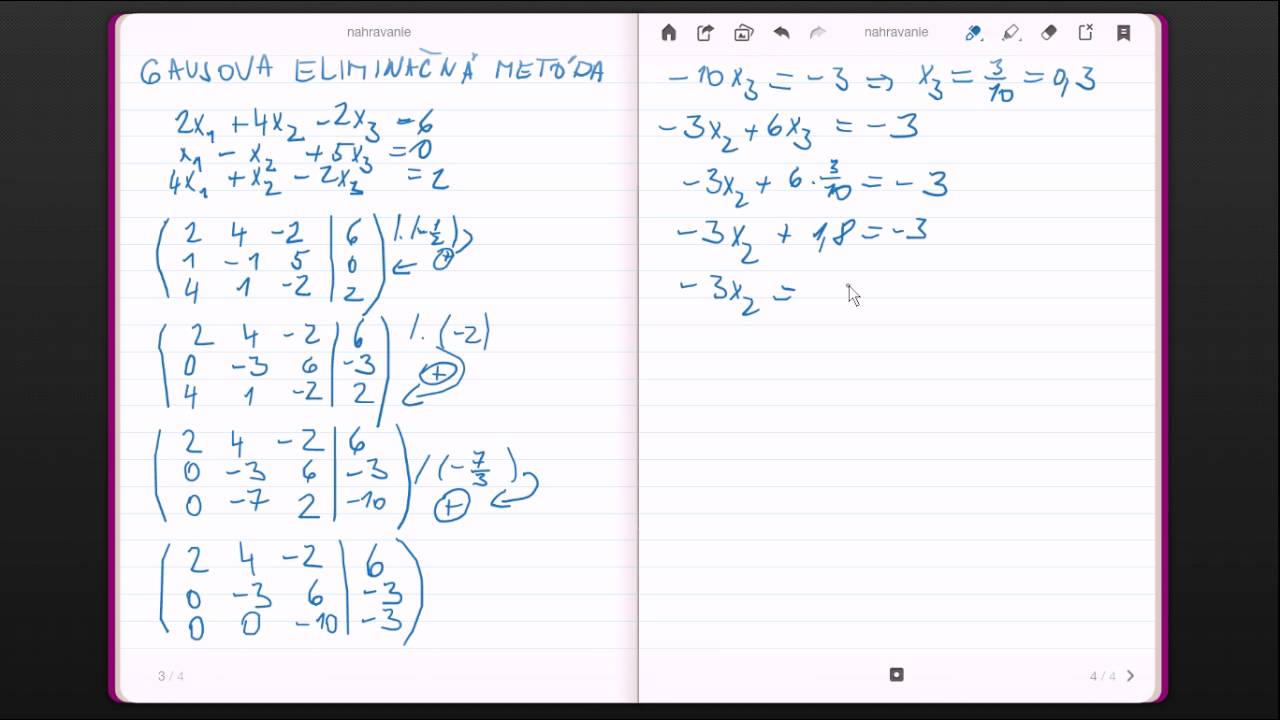 nahravanie
GAUSOVA ELIMINAČNÁ METÓDA
2x₁ + 4x₂ - 2x₃ = 6
x₁ - x₂ + 5x₃ = 0
4x₁ + x₂ - 2x₃ = 2
( 2 4 -2 | 6 ) /·(-1/2)
( 1 -1 5 | 0 ) ← ⊕
( 4 1 -2 | 2 )
( 2 4 -2 | 6 ) /·(-2)
( 0 -3 6 | -3 ) ⊕
( 4 1 -2 | 2 ) ←
( 2 4 -2 | 6 )
( 0 -3 6 | -3 ) /(-7/3)
( 0 -7 2 | -10 ) ⊕ ←
( 2 4 -2 | 6 )
( 0 -3 6 | -3 )
( 0 0 -10 | -3 )
3 / 4
nahravanie
-10x₃ = -3 ⇒ x₃ = 3/10 = 0,3
-3x₂ + 6x₃ = -3
-3x₂ + 6 · 3/10 = -3
-3x₂ + 1,8 = -3
-3x₂ =
4 / 4